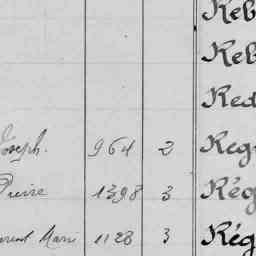 Reb
Reb
Red
Joseph. 964 2 Reg
Pierre 1398 3 Rég
Marie 1128 3 Rég